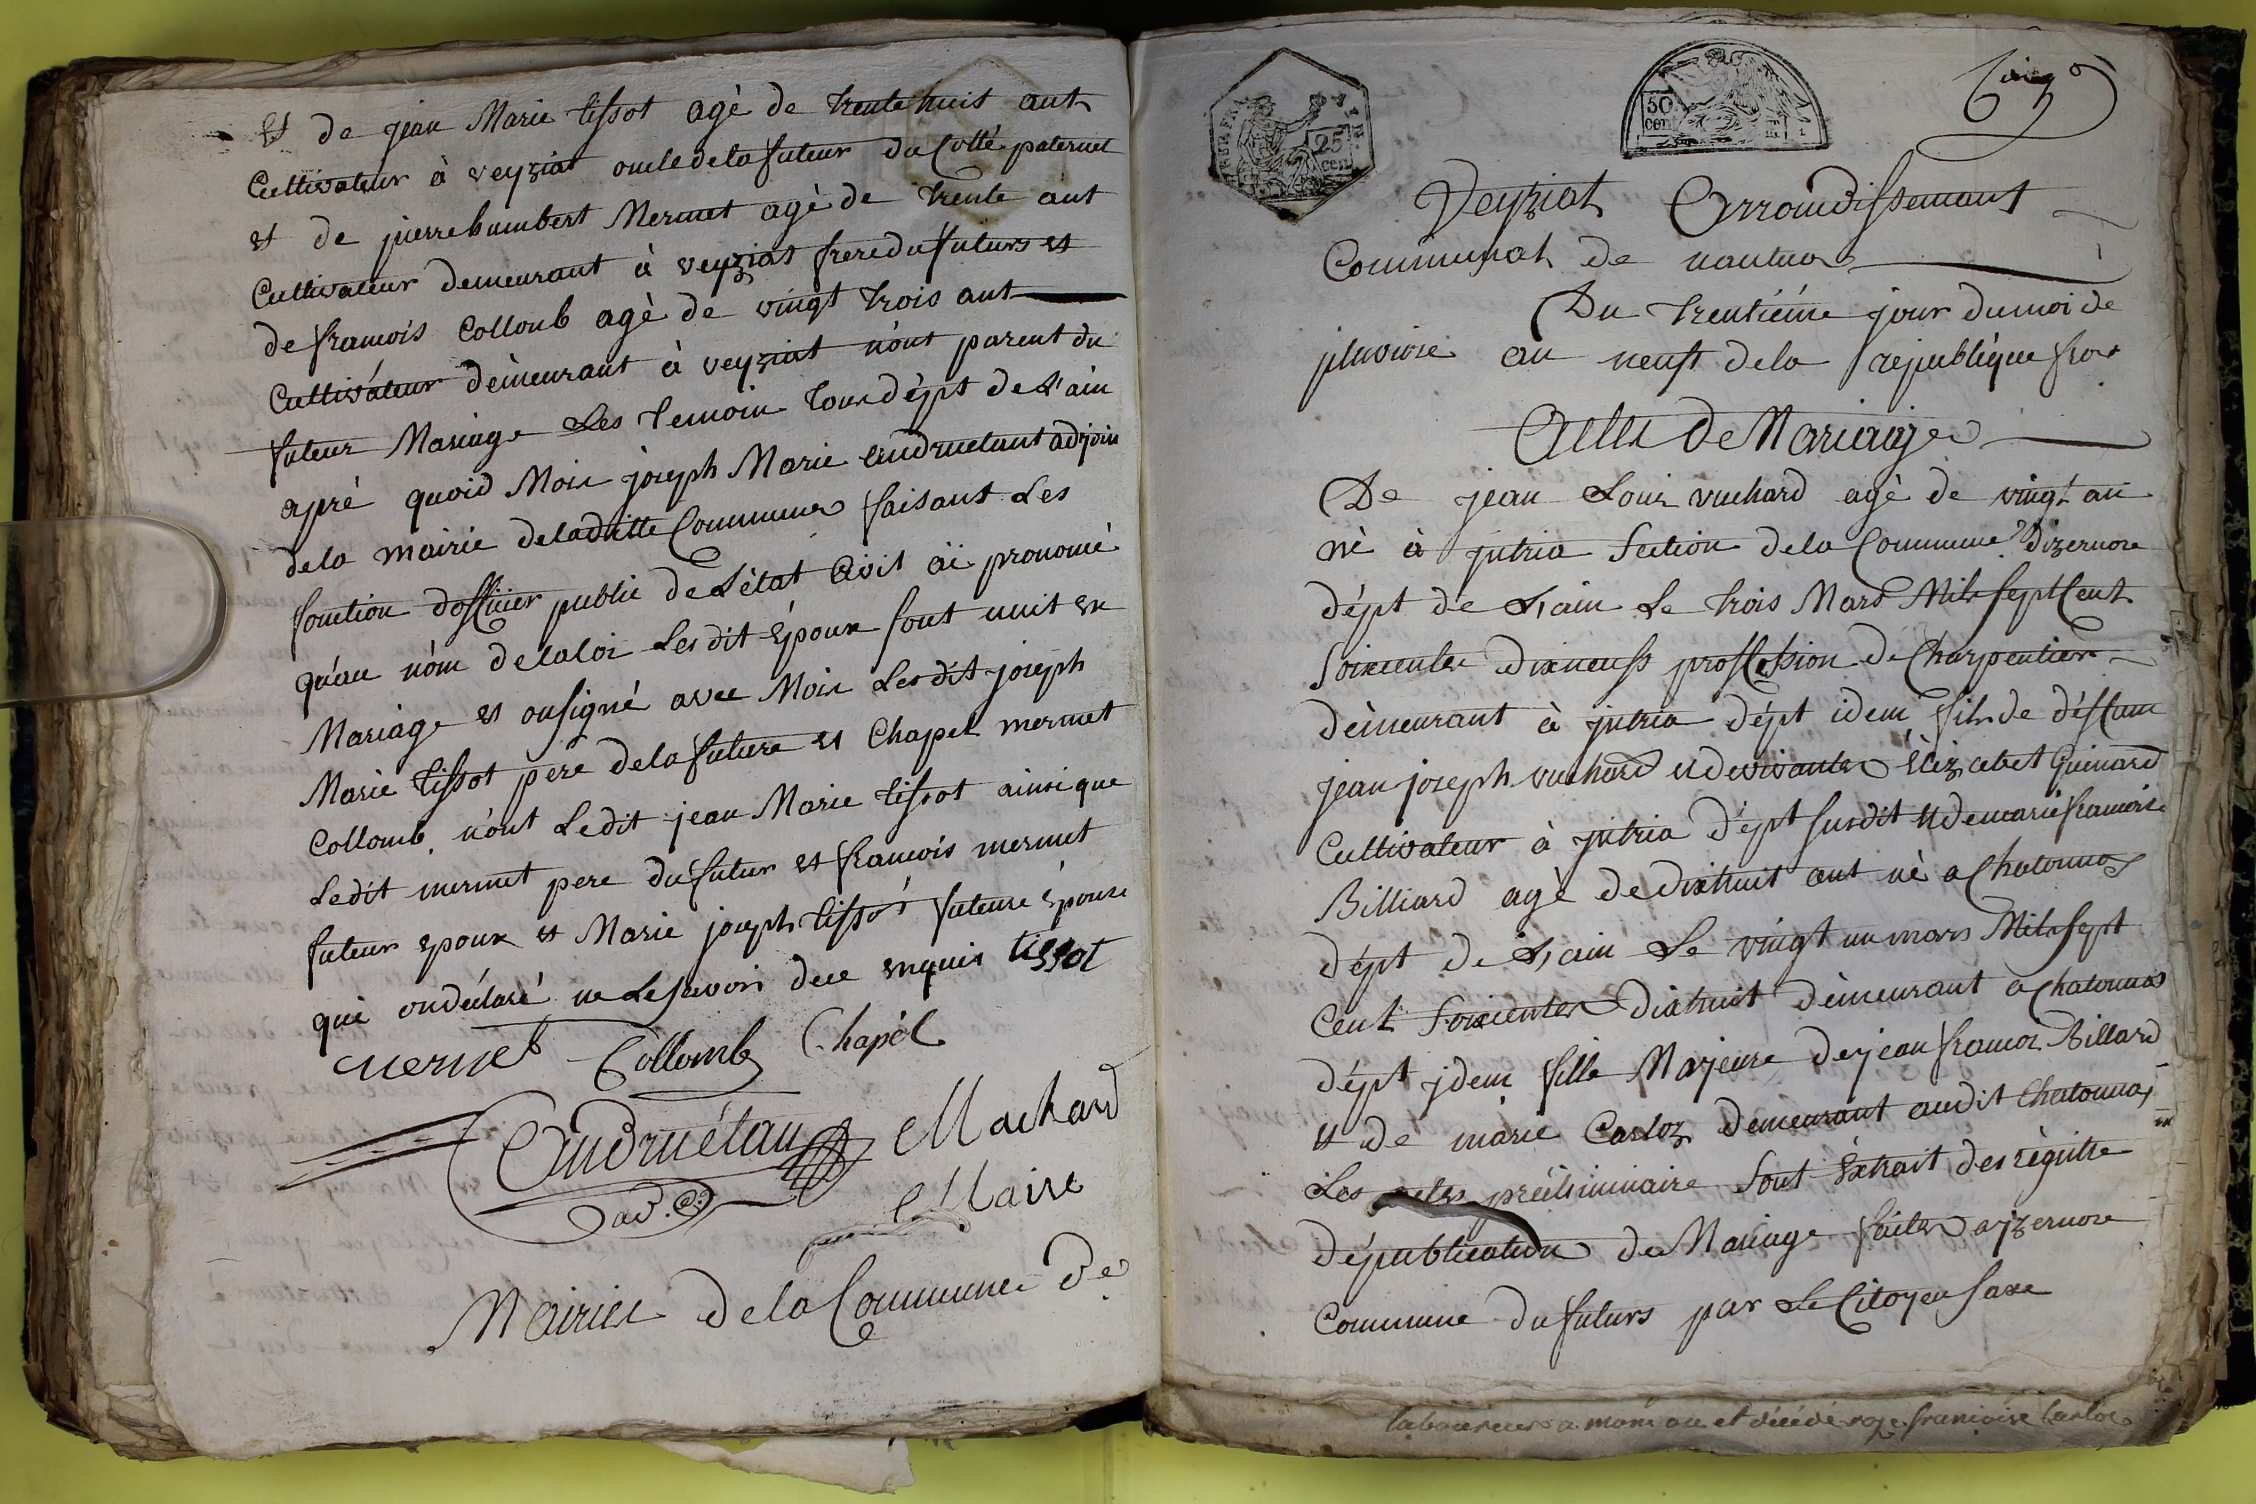 et de jean Marie tissot agè de trente huit ant
Cultivateur à veyziat oncle de la futeur du Cotté paternel
et de pierre humbert Mermet agè de trente ant
Cultivateur demeurant à veyziat frere du futurs et
de francois Colloub agè de vingt trois ant
Cultiváteur dèmeurant à veyziat nónt parent du
futeur Mariage Les temoin tous dépt de L'ain
apré quoid Moir joseph Marie andruetant adjoin
de la mairie de la ditte Commune faisant Les
fontion doffiiier public de L'état Civit äi pronomé
qu'au nóm de la loi Les dit époux sont unit en
Mariage et onsigné avec Moir Les dit joseph
Marie tissot père de la future et Chapel mermet
Collomb nónt Le dit jean Marie tissot ainsi que
Le dit mermet pere du futur et francois mermet
futeur epoux et Marie joseph tissot futeure épouse
qui ondéclaré ne Le savoir de ce enquis tissot
mermet Collomb Chapèl
Andruétan Machard
ad. Maire
Mairier de la Commune de
Cinq
25
cen
50
cent
Veyziat Arrondissemant
Communal de nantua
Du trentiéme jour du moi de
pluviose an neuf de la republique fra
Acter de Mariage
De jean Louir vuchard agè de vingt an
nè à jntria Section de la Commune dizernore
dépt de L'ain Le trois Mars Mil sept Cent
Soixenter dixneuf proffession de Charpentier
dèmeurant à jntria dépt idem fils de déffunt
jean joseph vuchard et de vivanter Elizabet Guinard
Cultivateur à jntria dépt susdit et de marie francoise
Billiard agè de dixhuit ant nè a Chatonnas
dépt de L'ain Le vingt un mars Mil sept
Cent Soixenter Dixhuit dèmeurant a Chatonnas
dépt jdem fille Majeure de jean francoi Billard
et de márie Carloz demeurant audit Chatonnas
Les acter préliminaire Sont éxtrait des règitre
dépublication de Mariage faiter a jzernore
Commune du futurs par Le Citoyen Saxe
laboureur a et décédé françoise Carloz